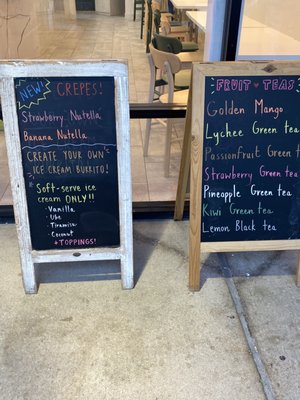 NEW! CREPES!
Strawberry Nutella
Banana Nutella
CREATE YOUR OWN
ICE CREAM BURRITO!
Soft-serve ice
cream ONLY!!
- Vanilla
- Ube
- Tiramisu
- Coconut
+ TOPPINGS!
FRUIT ♥ TEAS
Golden Mango
Lychee Green tea
Passionfruit Green t
Strawberry Green te
Pineapple Green tea
Kiwi Green tea
Lemon Black tea